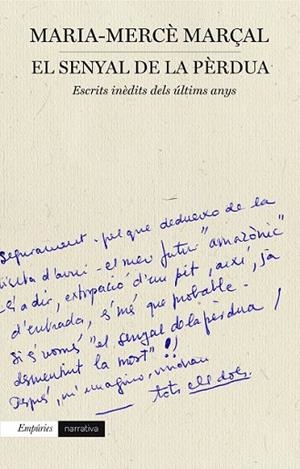 MARIA-MERCÈ MARÇAL
EL SENYAL DE LA PÈRDUA
Escrits inèdits dels últims anys
Segurament -pel que dedueixo de la
visita d'avui- el meu futur "amazònic"
-és a dir, extirpació d'un pit, així, ja
d'entrada, s'és més que probable.
Si és només "el senyal de la pèrdua /
desmentint la mort"!!
Després, m'imagino, vindran
tots els dols.
Empúries narrativa